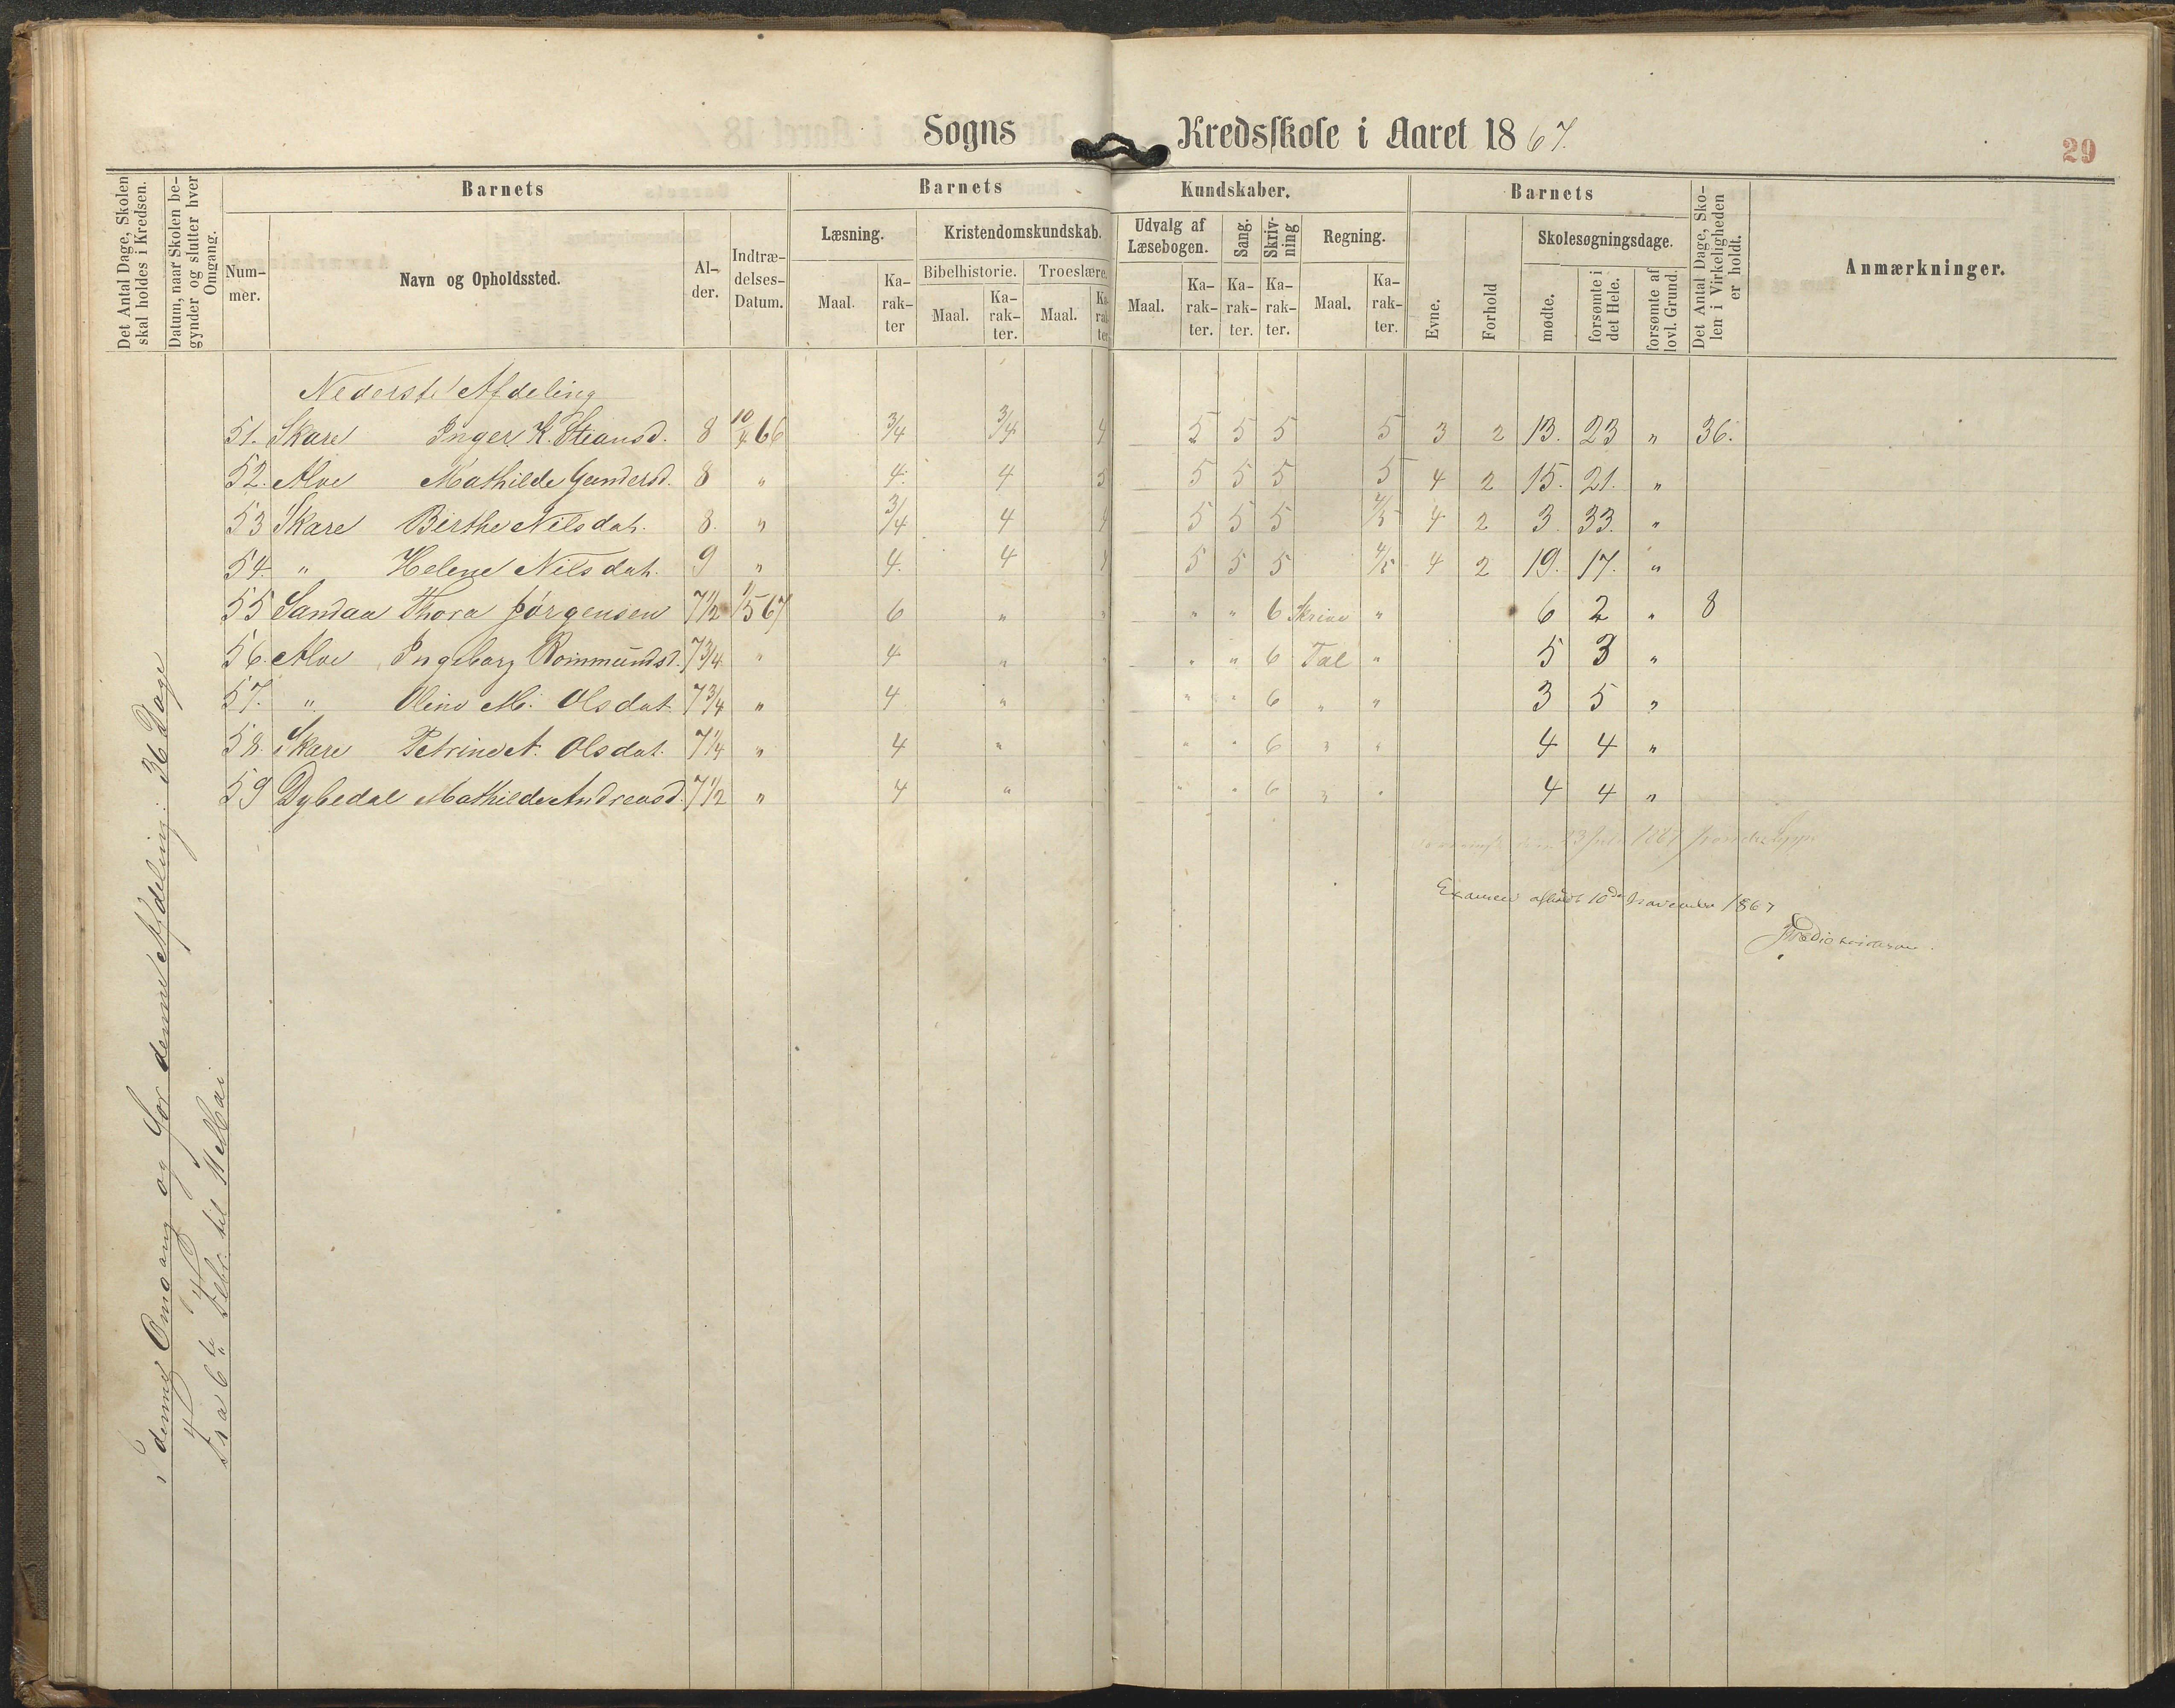 Sogns Kredsskole i Aaret 1867.
29
Det Antal Dage, Skolen skal holdes i Kredsen.
Datum, naar Skolen begynder og slutter hver Omgang.
Barnets
Barnets Kundskaber.
Barnets
Det Antal Dage, Skolen i Virkeligheden er holdt.
Anmærkninger.
Nummer. Navn og Opholdssted. Alder. Indtrædelses-Datum.
Læsning. Kristendomskundskab. Udvalg af Læsebogen. Sang. Skrivning Regning.
Bibelhistorie. Troeslære.
Maal. Karakter Maal. Karakter. Maal. Karakter. Maal. Karakter. Karakter. Karakter. Maal. Karakter.
Evne. Forhold Skolesøgningsdage. mødte. forsømte i det Hele. forsømte af lovl. Grund.
Nederste Afdeling
51. Skare Inger K. Stiansd. 8 10/4 66 3/4 3/4 4 5 5 5 5 3 2 13. 23 " 36.
52. Alve Mathilde Gundersd. 8 " 4. 4 5 5 5 5 5 4 2 15. 21. "
53 Skare Birthe Nilsdat. 8. " 3/4 4 4 5 5 5 4/5 4 2 3. 33. "
54. " Helene Nilsdat. 9 " 4. 4 4 5 5 5 4/5 4 2 19. 17. "
55 Sandaa Thora Jörgensen 7 1/2 1/5 67 6 " " " " 6 Skrive " 6 2 " 8
56. Alve Ingeborg Rommundsd. 7 3/4 " 4 " " " " 6 Tal " 5 3 "
57. " Oline M. Olsdat. 7 3/4 " 4 " " " " 6 " " 3 5 "
58. Skare Petrine A. Olsdat. 7 1/4 " 4 " " " " 6 " " 4 4 "
59 Dybedal Mathilde Andreasd. 7 1/2 " 4 " " " " 6 " " 4 4 "
Examen afholdt 10de November 1867
I denne Omgang og for denne Afdeling: 36 Dage
Fra 6te Febr. til 11 Mai